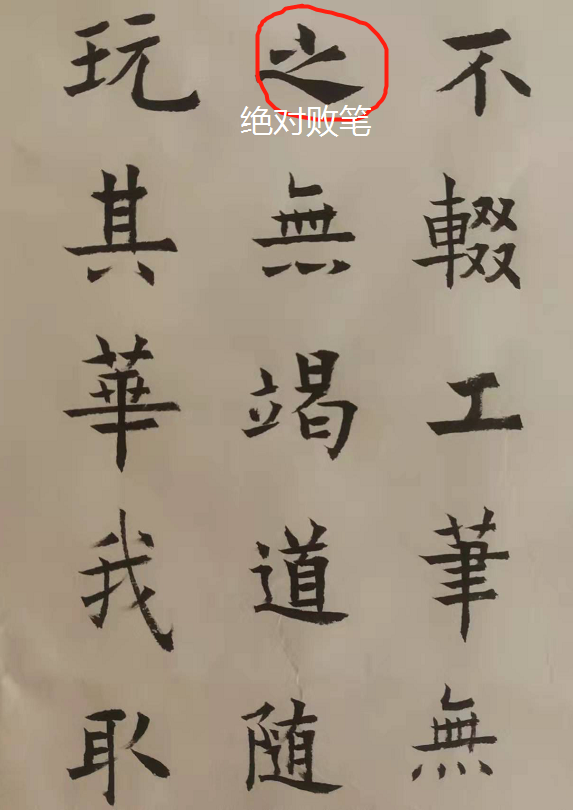 不輟工筆無
之無竭道随
玩其華我取
绝对败笔